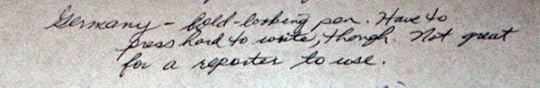 Germany – bold-looking pen. Have to
press hard to write, though. Not great
for a reporter to use.